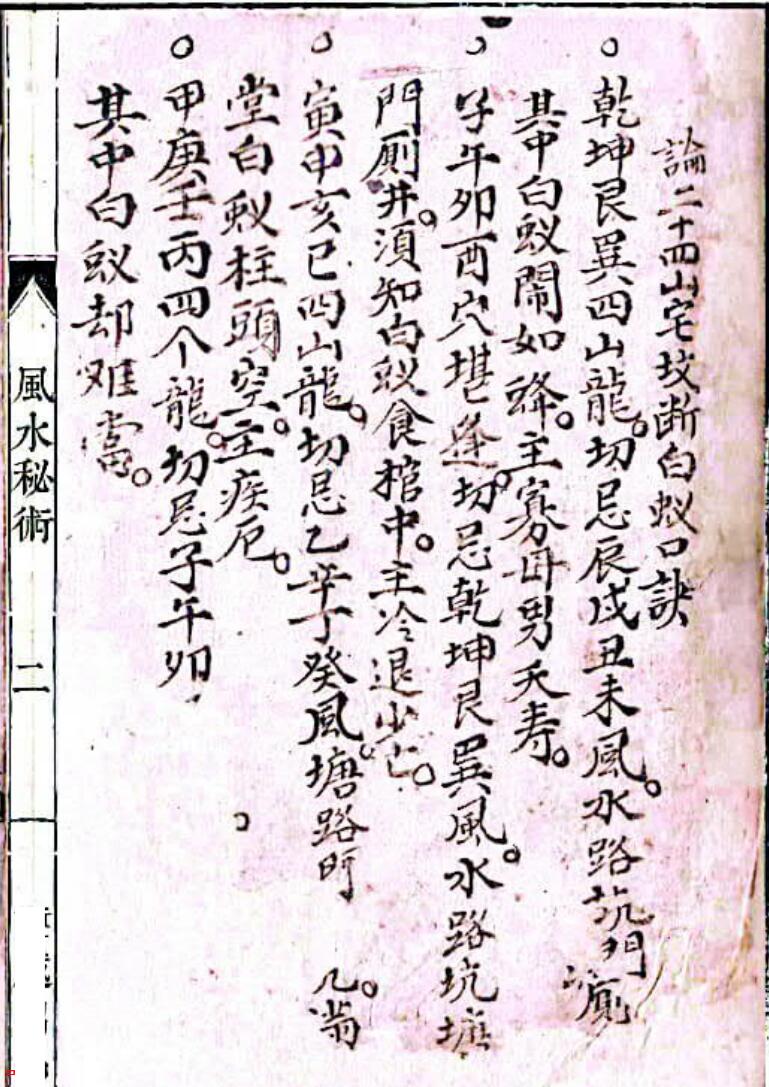 論二十四山宅坟断白蚁口訣
乾坤艮巽四山龍。切忌辰戌丑未風。水路坑門廁
其中白蚁鬧如蜂。主寡母男夭寿。
子午卯酉穴堪逢。切忌乾坤艮巽風。水路坑塘
門厠井。須知白蚁食棺中。主冷退少亡。
寅申亥巳四山龍。切忌乙辛丁癸風。塘路所 凡
堂白蚁柱頭空。主疾厄。
甲庚壬丙四个龍。切忌子午卯
其中白蚁却难當。
風水秘術
二